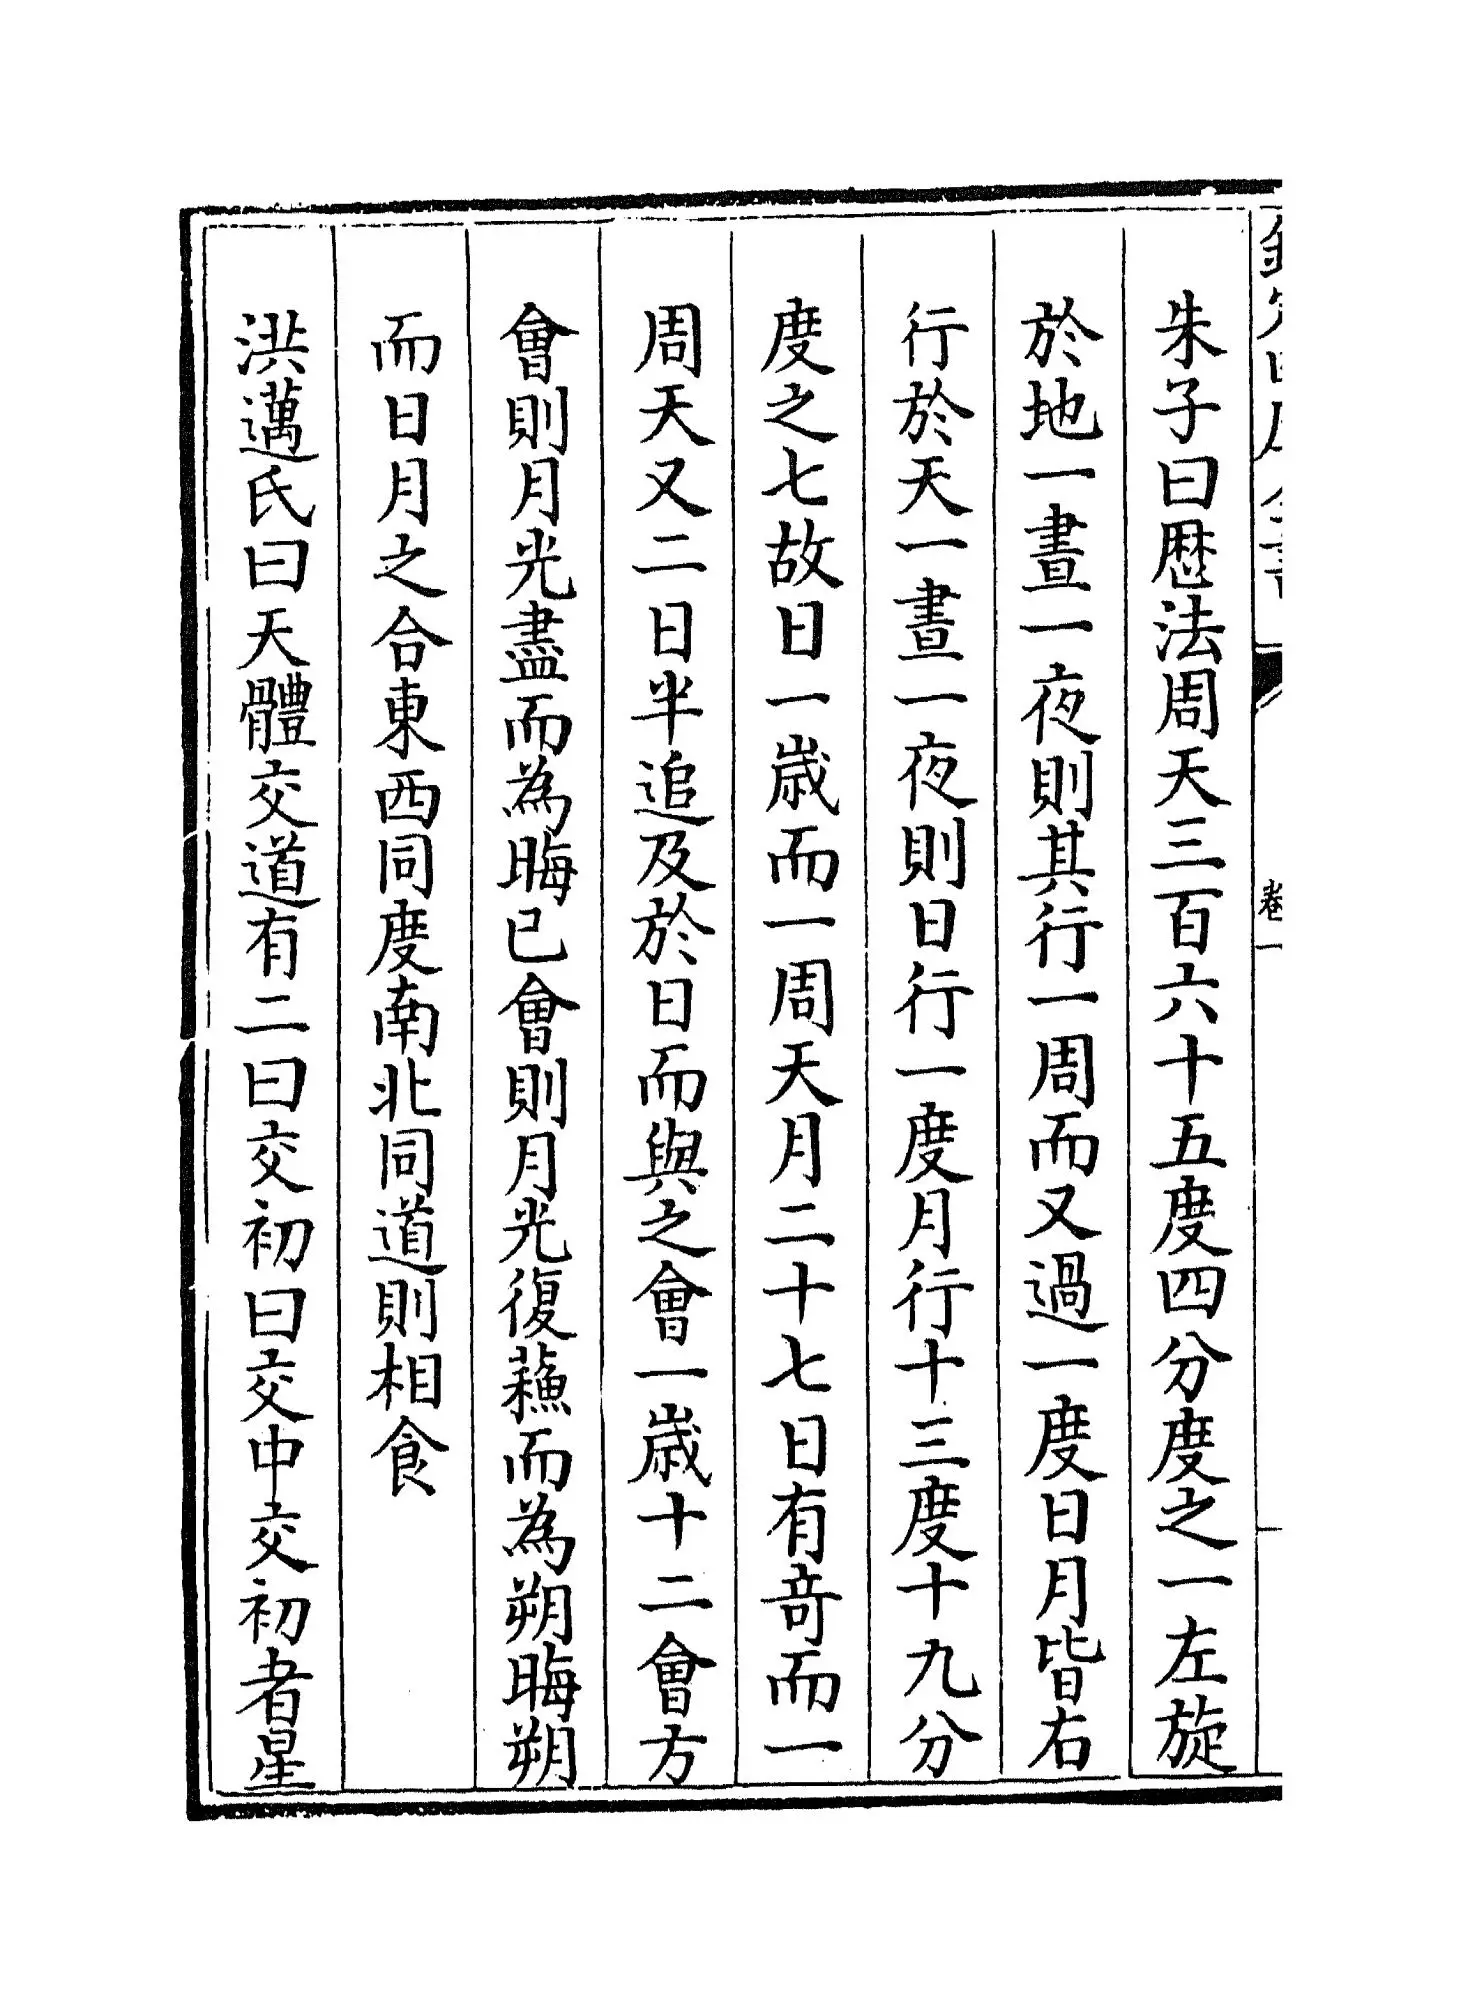 朱子曰歴法周天三百六十五度四分度之一左旋
於地一晝一夜則其行一周而又過一度日月皆右
行於天一晝一夜則日行一度月行十三度十九分
度之七故日一歳而一周天月二十七日有竒而一
周天又二日半追及於日而與之會一歳十二會方
會則月光盡而為晦已會則月光復蘓而為朔晦朔
而日月之合東西同度南北同道則相食
洪邁氏曰天體交道有二曰交初曰交中交初者星
卷一